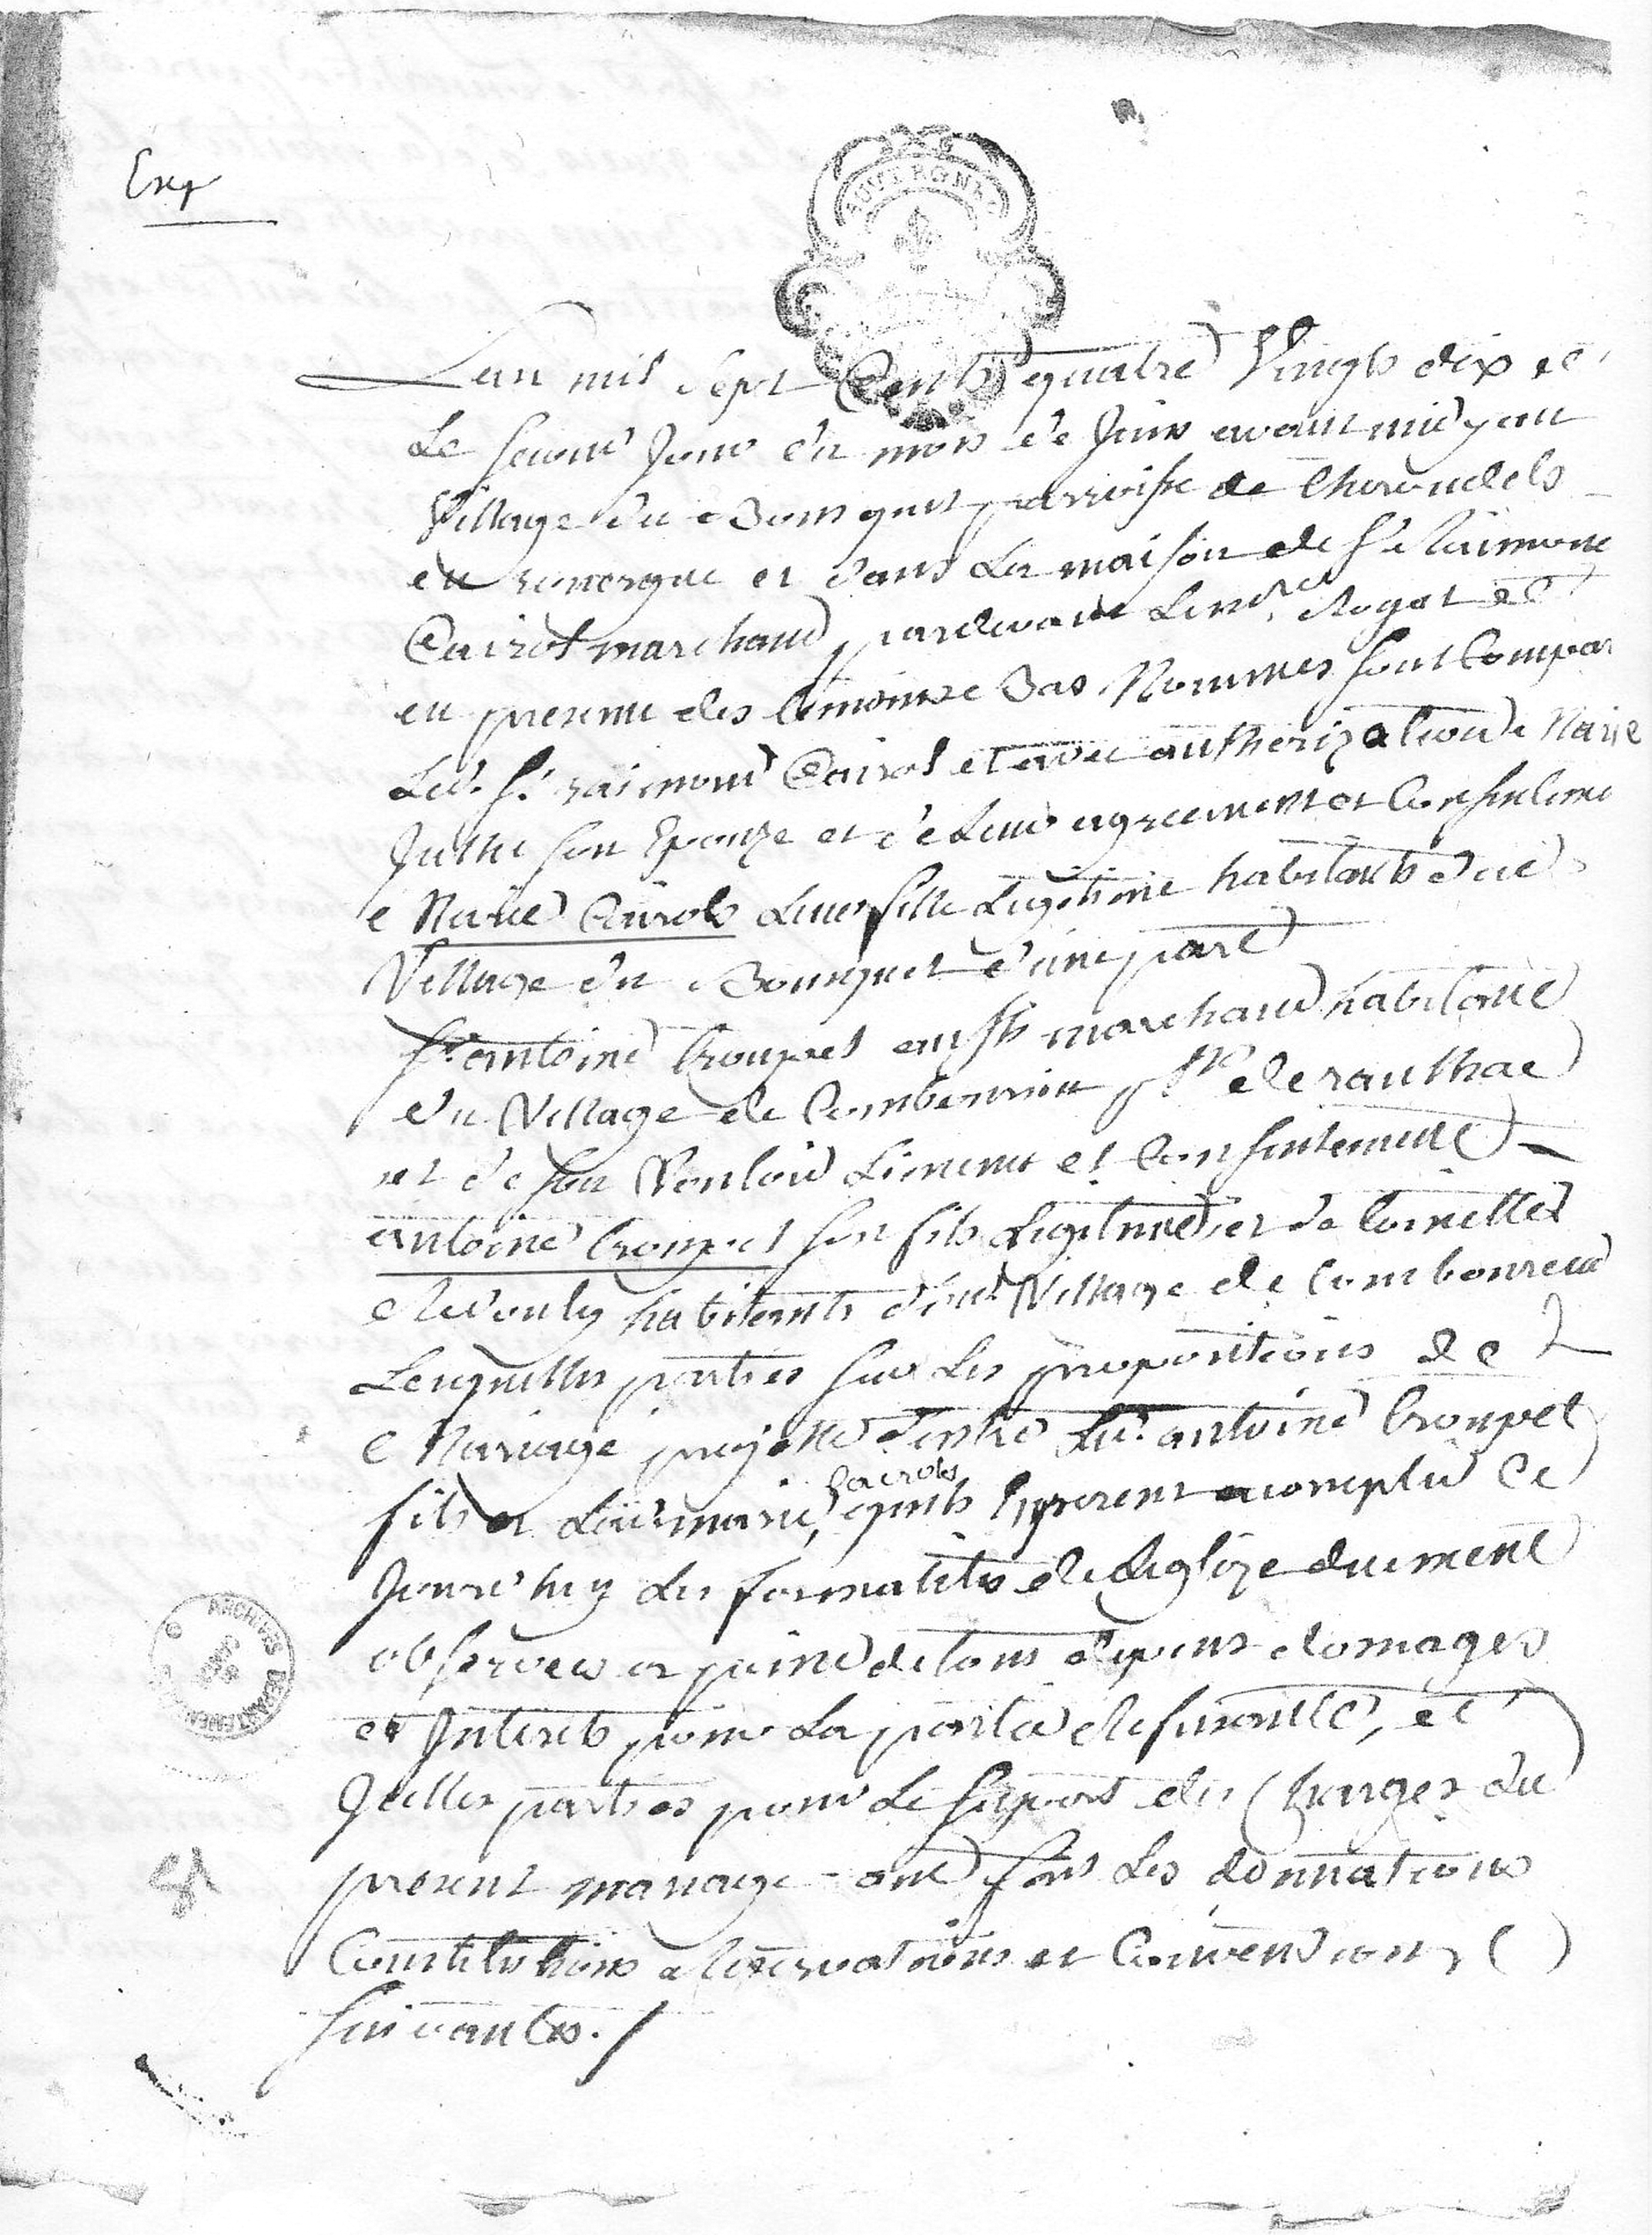 Exp
AUVERGNE
Lan mil sept Cents quatre Vingts dix et
Le second Jour du mois de Juin avant midy au
Village du Bousquet parroisse de Therondels
en rouergue et dans la maison de Sr Raimond
Cairol marchand, pardevant Le nre Royal et
en presence des temoins bas Nommes sont Compar
Led. Sr. raimond Cairol et avec authorization de Marie
son Epouze et de Leur agreement et Consenteme
Marie Cairols Leur fille Legitime habitants dud
Village du Bousquet d'une part
Sr antoine Troupel aussi marchand habitant
du Village de psse de raulhac
et de son Vouloir Licence et Consentement
antoine troupel son fils Legitime et de toinette
habitants dud Village de
Lesquelles parties sur Les propositions de
Mariage projette d'entre Led. antoine troupel
cairols
fils et Laditte marie, quils seront accomplir Ce
Jourd'huy Les formalites de Leglize duement
observees a peine de tous depens domages
et Interets pour La partie refusante, et
Icelles parties pour Le suport des Charges du
present mariage ont fait Les donnations
Constitutions reservations et Conventions
suivantes. /
ARCHIVES DEPARTEMENTALES